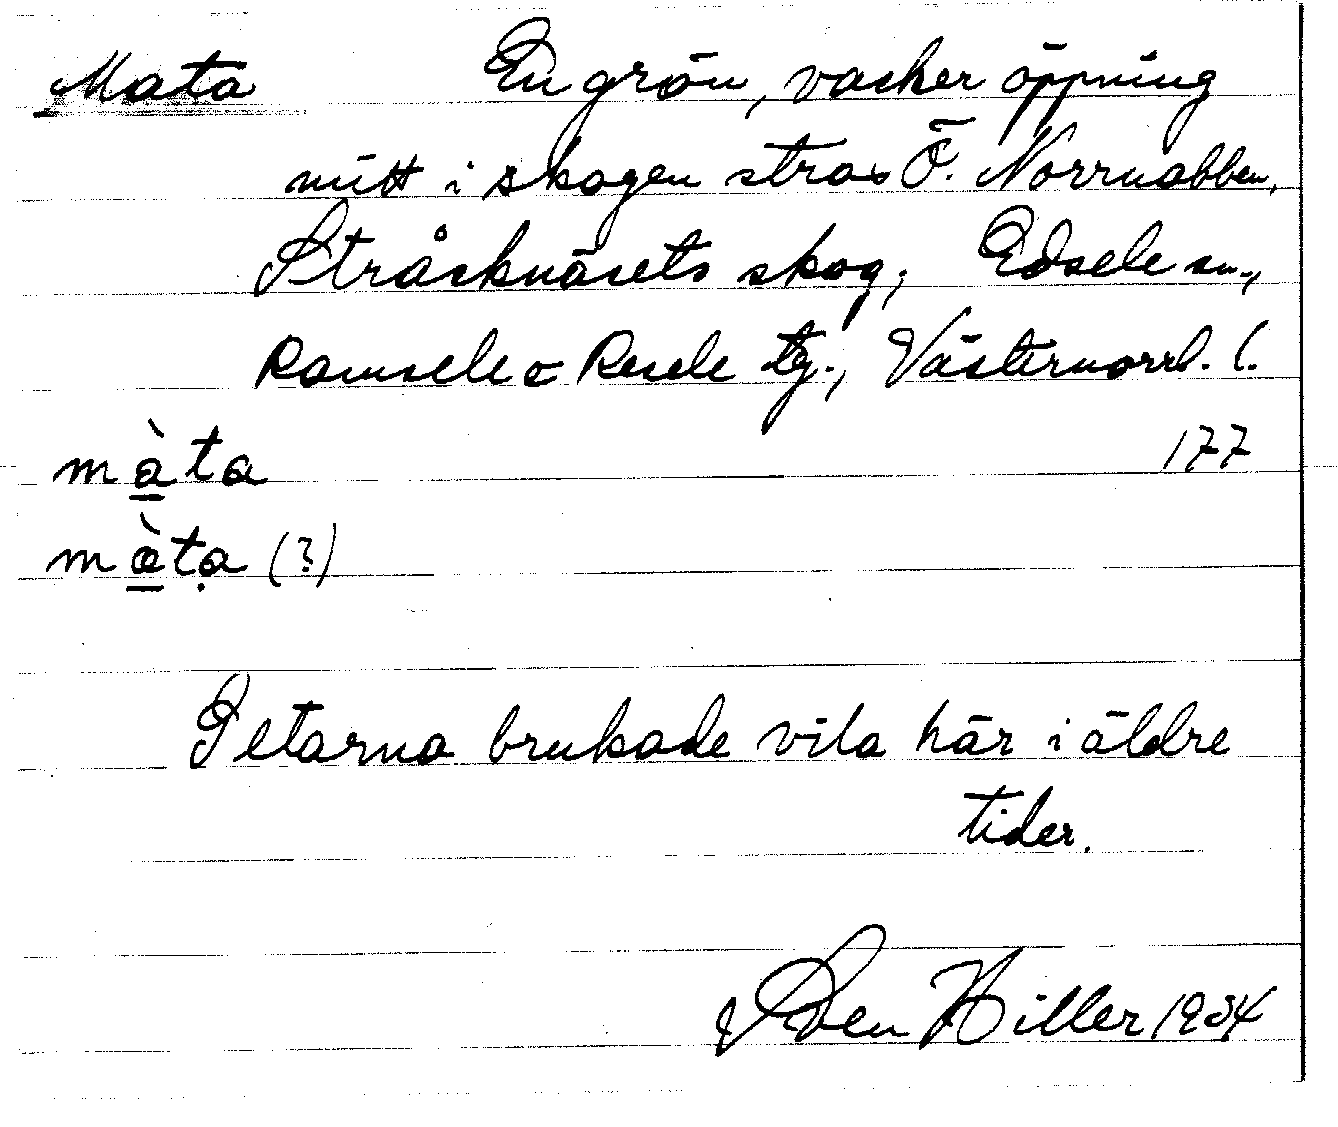 Mata En grön, vacker öppning
mitt i skogen strax Ö. Norrnabben,
Stråcknäsets skog, Edsele sn.,
Ramsele o Resele tg., Västernorrl. l.
177
màta
màtạ (?)
Getarna brukade vila här i äldre
tider.
Sven Hiller 1934